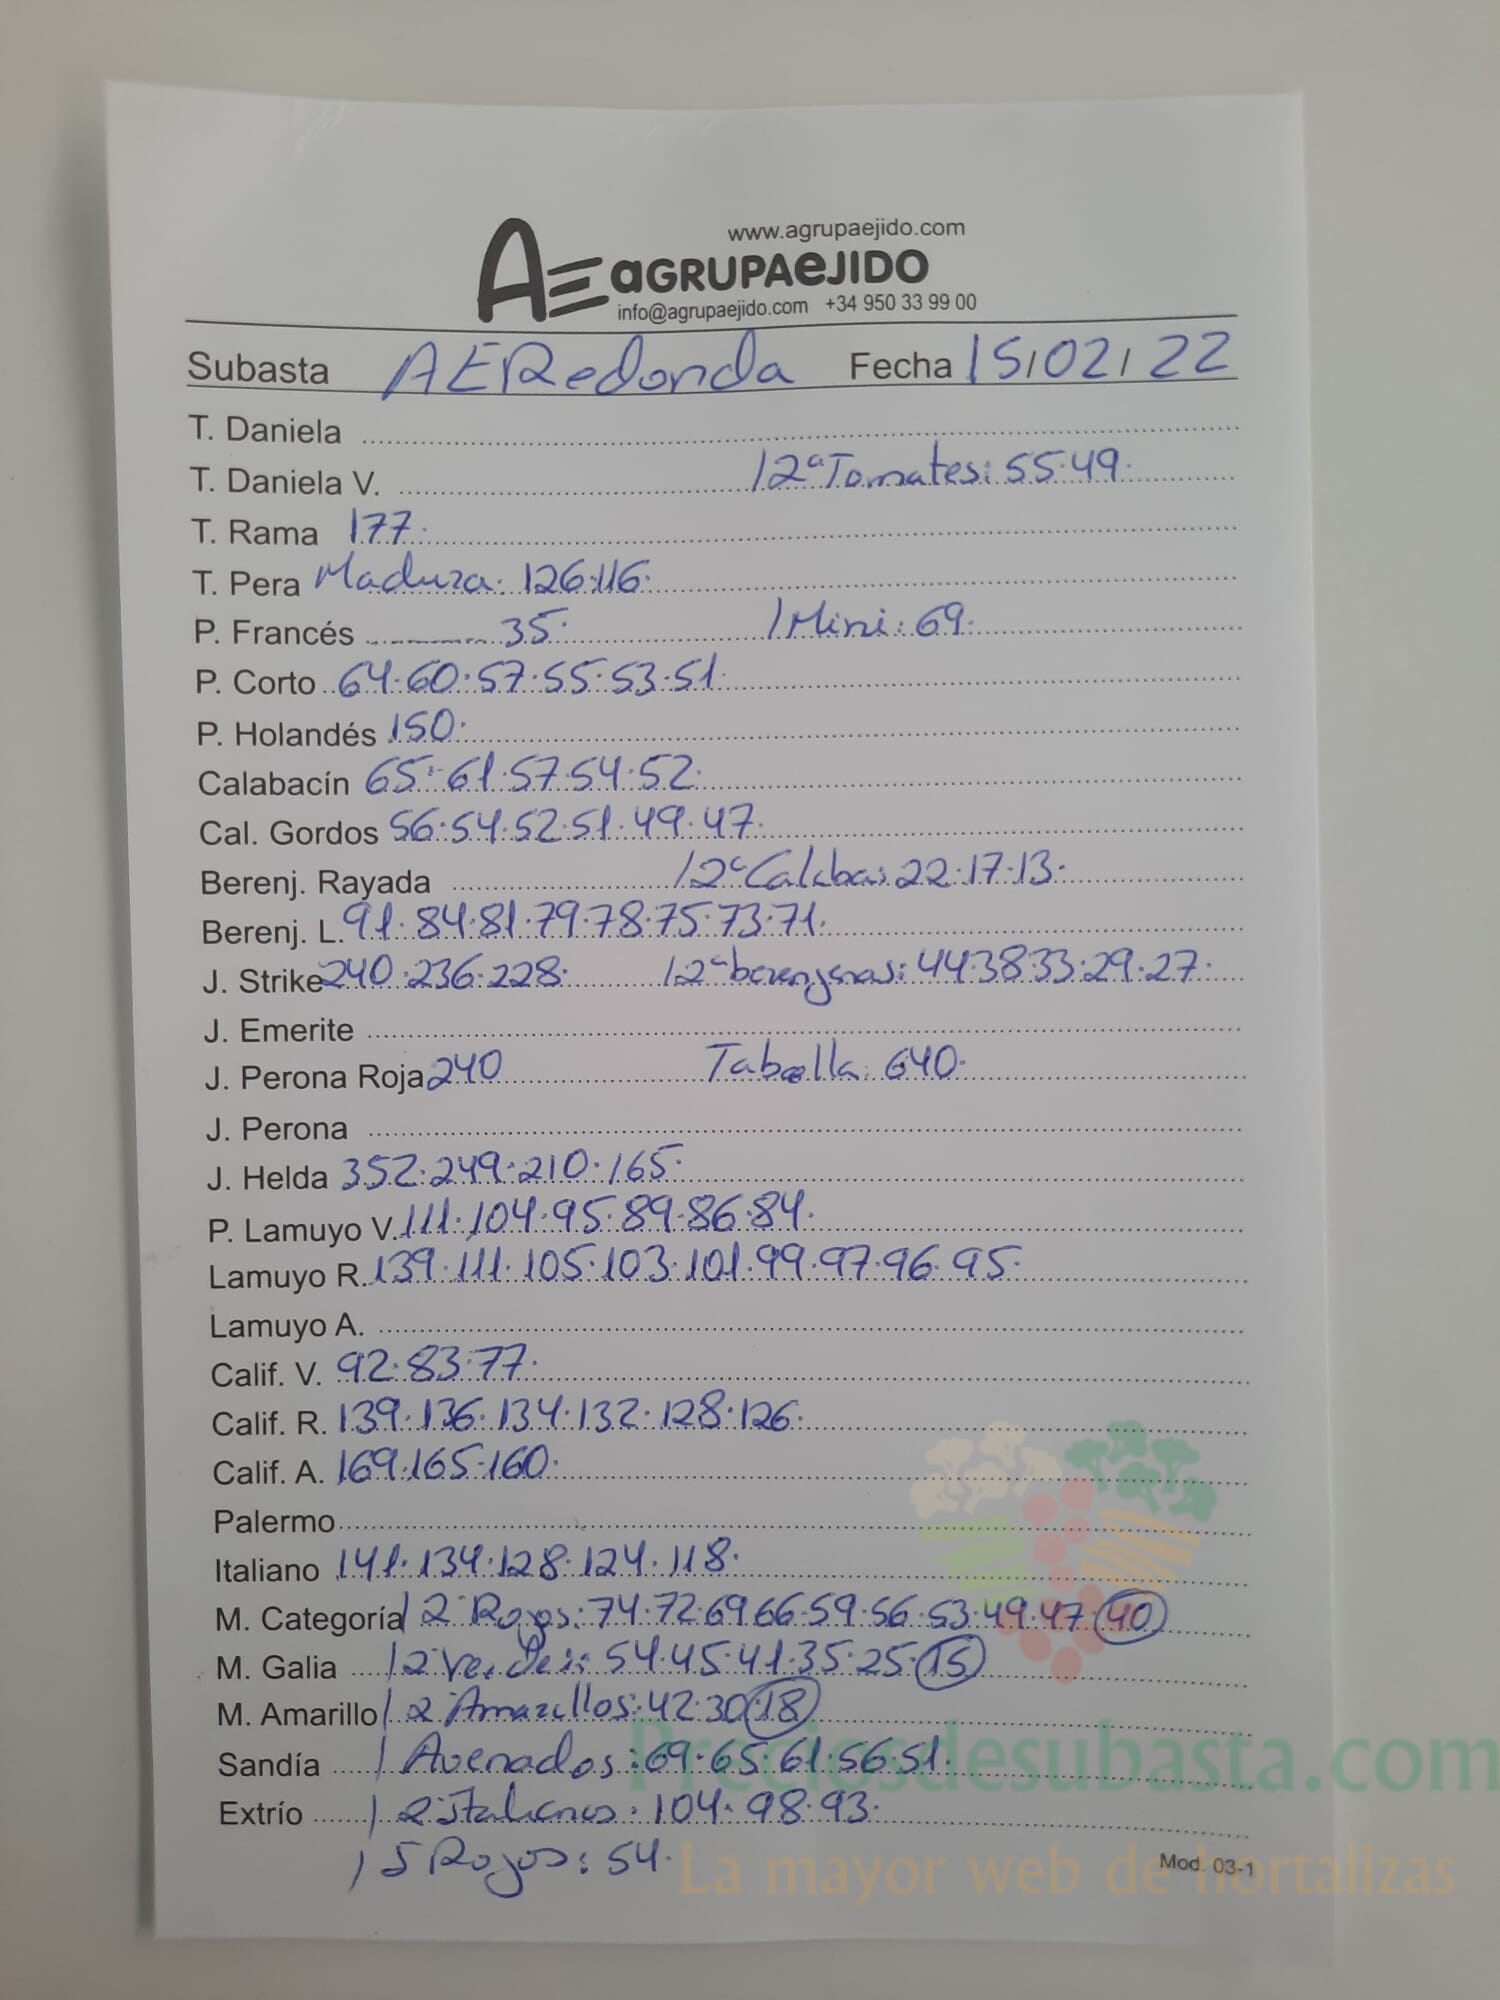 www.agrupaejido.com
AE aGRUPAeJIDO
info@agrupaejido.com +34 950 33 99 00
Subasta AERedonda Fecha 15/02/22
T. Daniela
T. Daniela V. / 2ª Tomates: 55.49.
T. Rama 177.
T. Pera Madura. 126.116.
P. Francés 35. / Mini: 69.
P. Corto 64.60.57.55.53.51.
P. Holandés 150.
Calabacín 65.61.57.54.52.
Cal. Gordos 56.54.52.51.49.47.
Berenj. Rayada / 2ª Calaba: 22.17.13.
Berenj. L. 91.84.81.79.78.75.73.71.
J. Strike 240.236.228. / 2ª berenjenas: 44.38.33.29.27.
J. Emerite
J. Perona Roja 240 Tabella: 640.
J. Perona
J. Helda 352.249.210.165.
P. Lamuyo V. 111.104.95.89.86.84.
Lamuyo R. 139.111.105.103.101.99.97.96.95.
Lamuyo A.
Calif. V. 92.83.77.
Calif. R. 139.136.134.132.128.126.
Calif. A. 169.165.160.
Palermo
Italiano 141.134.128.124.118.
M. Categoría / 2ª Rojos: 74.72.69.66.59.56.53.49.47.40
M. Galia / 2ª Verdes: 54.45.41.35.25.15
M. Amarillo / 2ª Amarillos: 42.30.18
Sandía / Avenados: 69.65.61.56.51.
Preciosdesubasta.com
Extrío / 2ª Italianos: 104.98.93.
/ 5 Rojos: 54.
La mayor web de hortalizas
Mod. 03-1